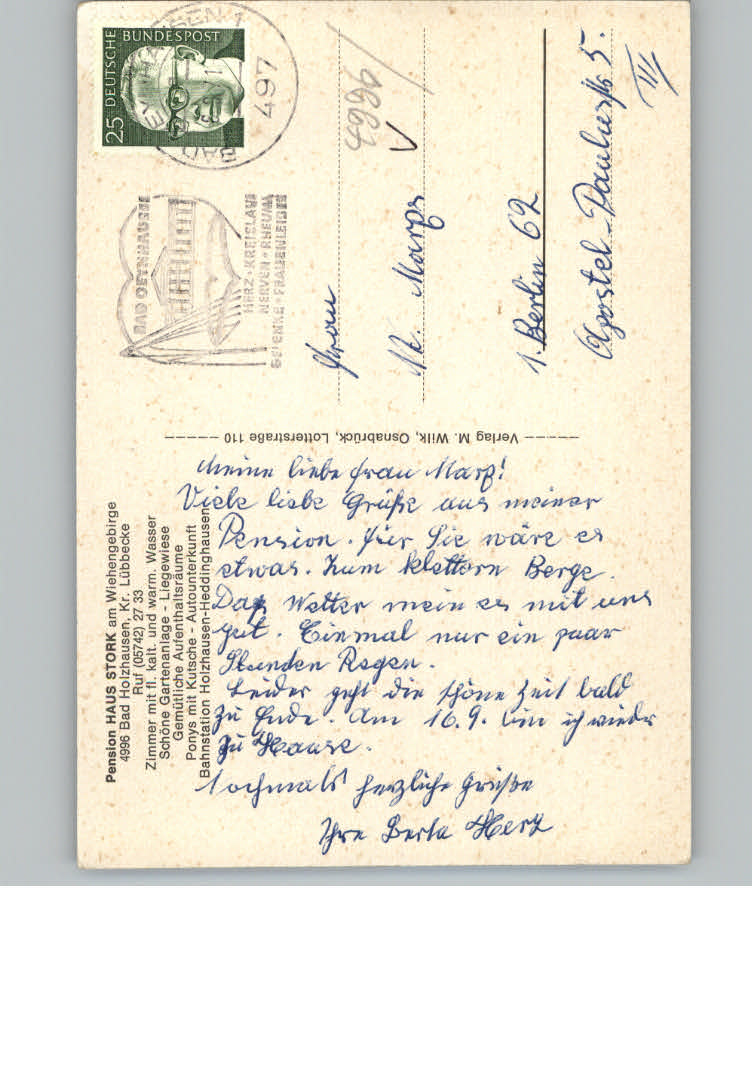 Pension HAUS STORK am Wiehengebirge
4996 Bad Holzhausen, Kr. Lübbecke
Ruf (05742) 27 33
Zimmer mit fl. kalt. und warm. Wasser
Schöne Gartenanlage - Liegewiese
Gemütliche Aufenthaltsräume
Ponys mit Kutsche - Autounterkunft
Bahnstation Holzhausen-Heddinghausen
Meine liebe Frau Marp!
Viele liebe Grüße aus meiner
Pension. Für Sie wäre es
etwas. Zum klettern Berge.
Das Wetter mein es mit uns
gut. Einmal nur ein paar
Stunden Regen.
Leider geht die schöne Zeit bald
zu Ende. Am 16.9. bin ich wieder
zu Hause.
Nochmals herzliche Grüße
Ihre Berta Herz
Verlag M. Wilk, Osnabrück, Lotterstraße 110
25 DEUTSCHE BUNDESPOST
497
BAD OEYNHAUSEN 1
BAD OEYNHAUSEN
HERZ · KREISLAUF
NERVEN · RHEUMA
GELENKE · FRAUENLEIDEN
4996
Frau
M. Marp
1. Berlin 62
Apostel-Paulusstr 5.
III